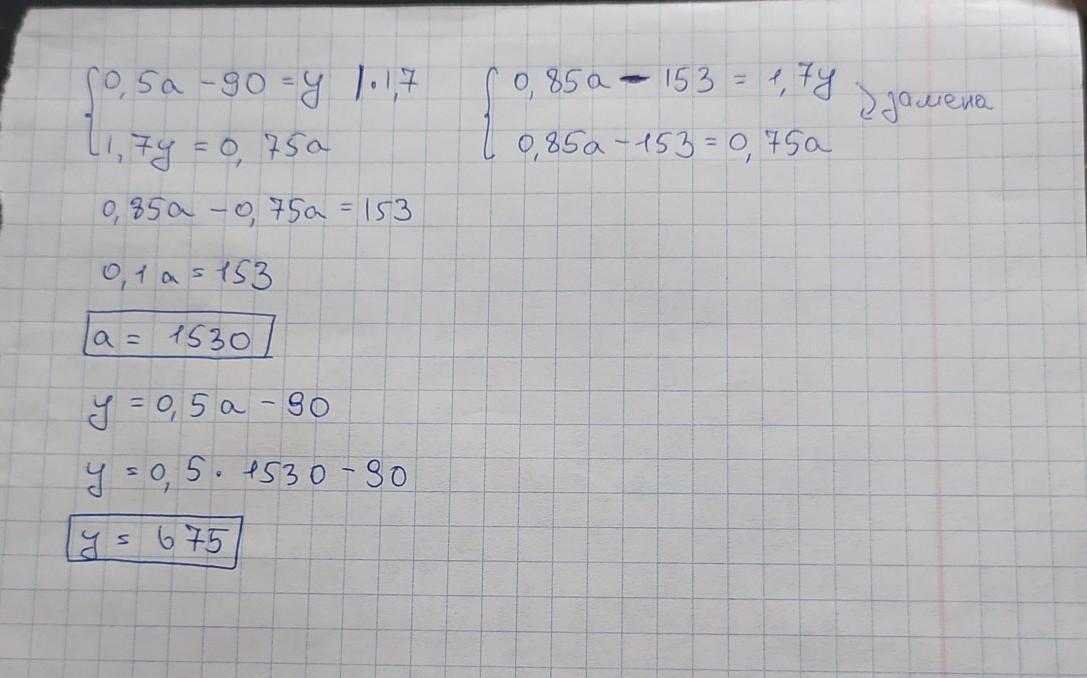 0,5a - 90 = y |·1,7
1,7y = 0,75a
0,85a - 153 = 1,7y
0,85a - 153 = 0,75a
замена
0,85a - 0,75a = 153
0,1a = 153
a = 1530
y = 0,5a - 90
y = 0,5 · 1530 - 90
y = 675